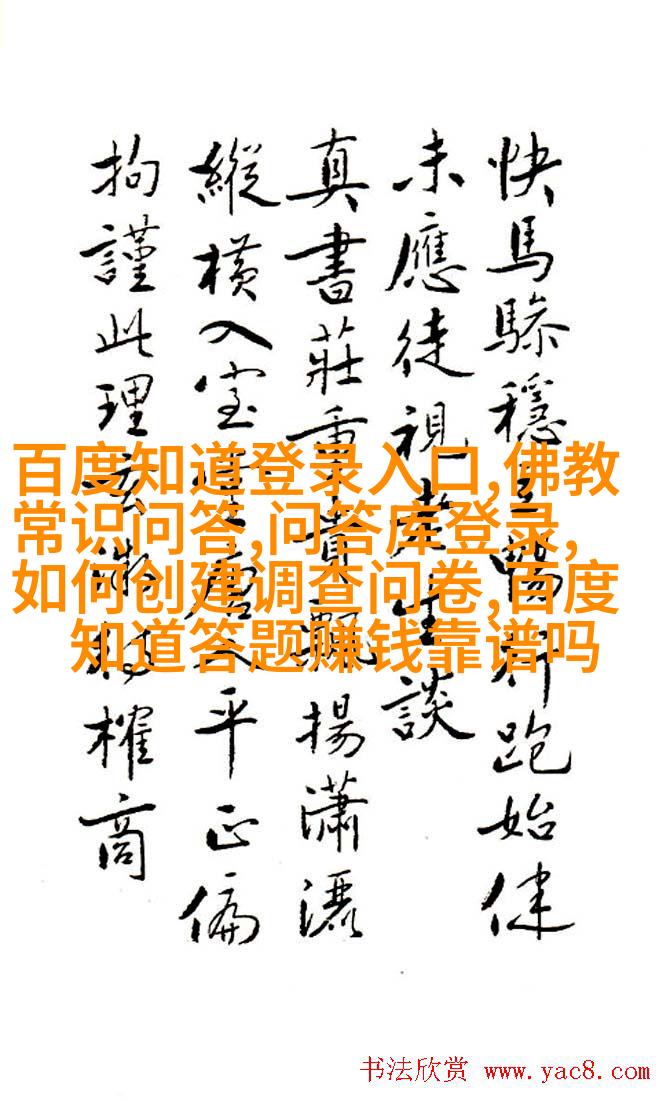 快馬穩跑始
未應徒視老生談
真書莊重貴飄揚瀟灑
縱橫入室平正偏
拘謹此理玄微榷商
百度知道登录入口,佛教
常识问答,问答库登录,
如何创建调查问卷,百度
知道答题赚钱靠谱吗
书法欣赏 www.yac8.com